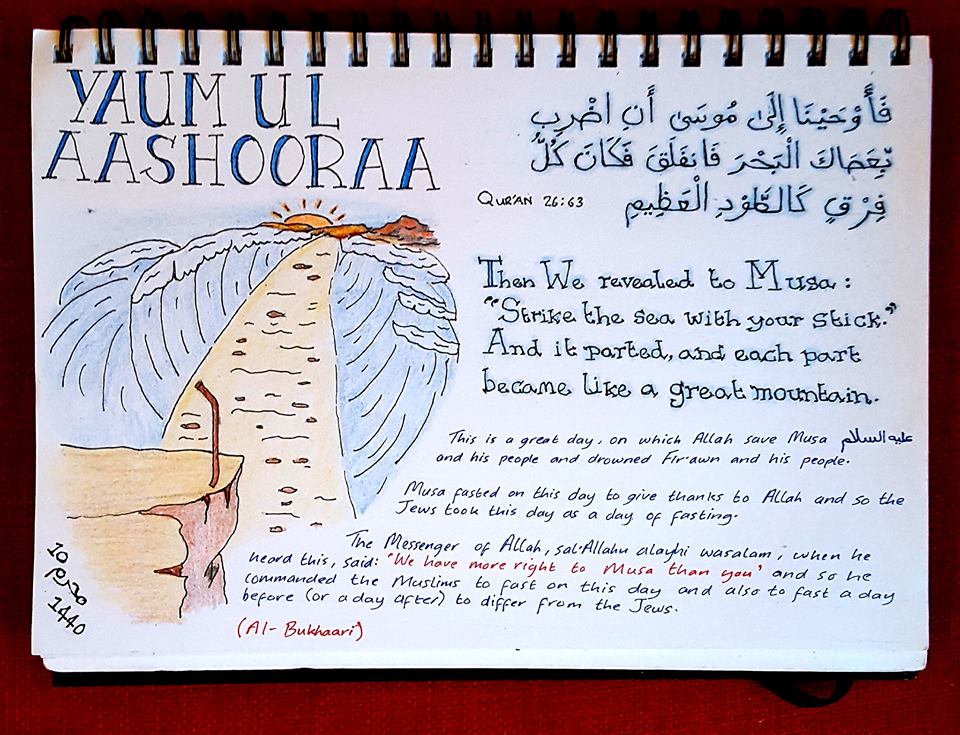 YAUM UL
AASHOORAA
فَأَوْحَيْنَا إِلَىٰ مُوسَىٰ أَنِ اضْرِب
بِّعَصَاكَ الْبَحْرَ فَانفَلَقَ فَكَانَ كُلُّ
فِرْقٍ كَالطَّوْدِ الْعَظِيمِ
QUR'AN 26:63
Then We revealed to Musa:
"Strike the sea with your stick."
And it parted, and each part
became like a great mountain.
This is a great day, on which Allah save Musa عليه السلام
and his people and drowned Fir'awn and his people.
Musa fasted on this day to give thanks to Allah and so the
Jews took this day as a day of fasting.
The Messenger of Allah, sal'Allahu alayhi wasalam, when he
heard this, said: "We have more right to Musa than you" and so he
commanded the Muslims to fast on this day and also to fast a day
before (or a day after) to differ from the Jews.
(Al-Bukhaari)
10 محرم 1440